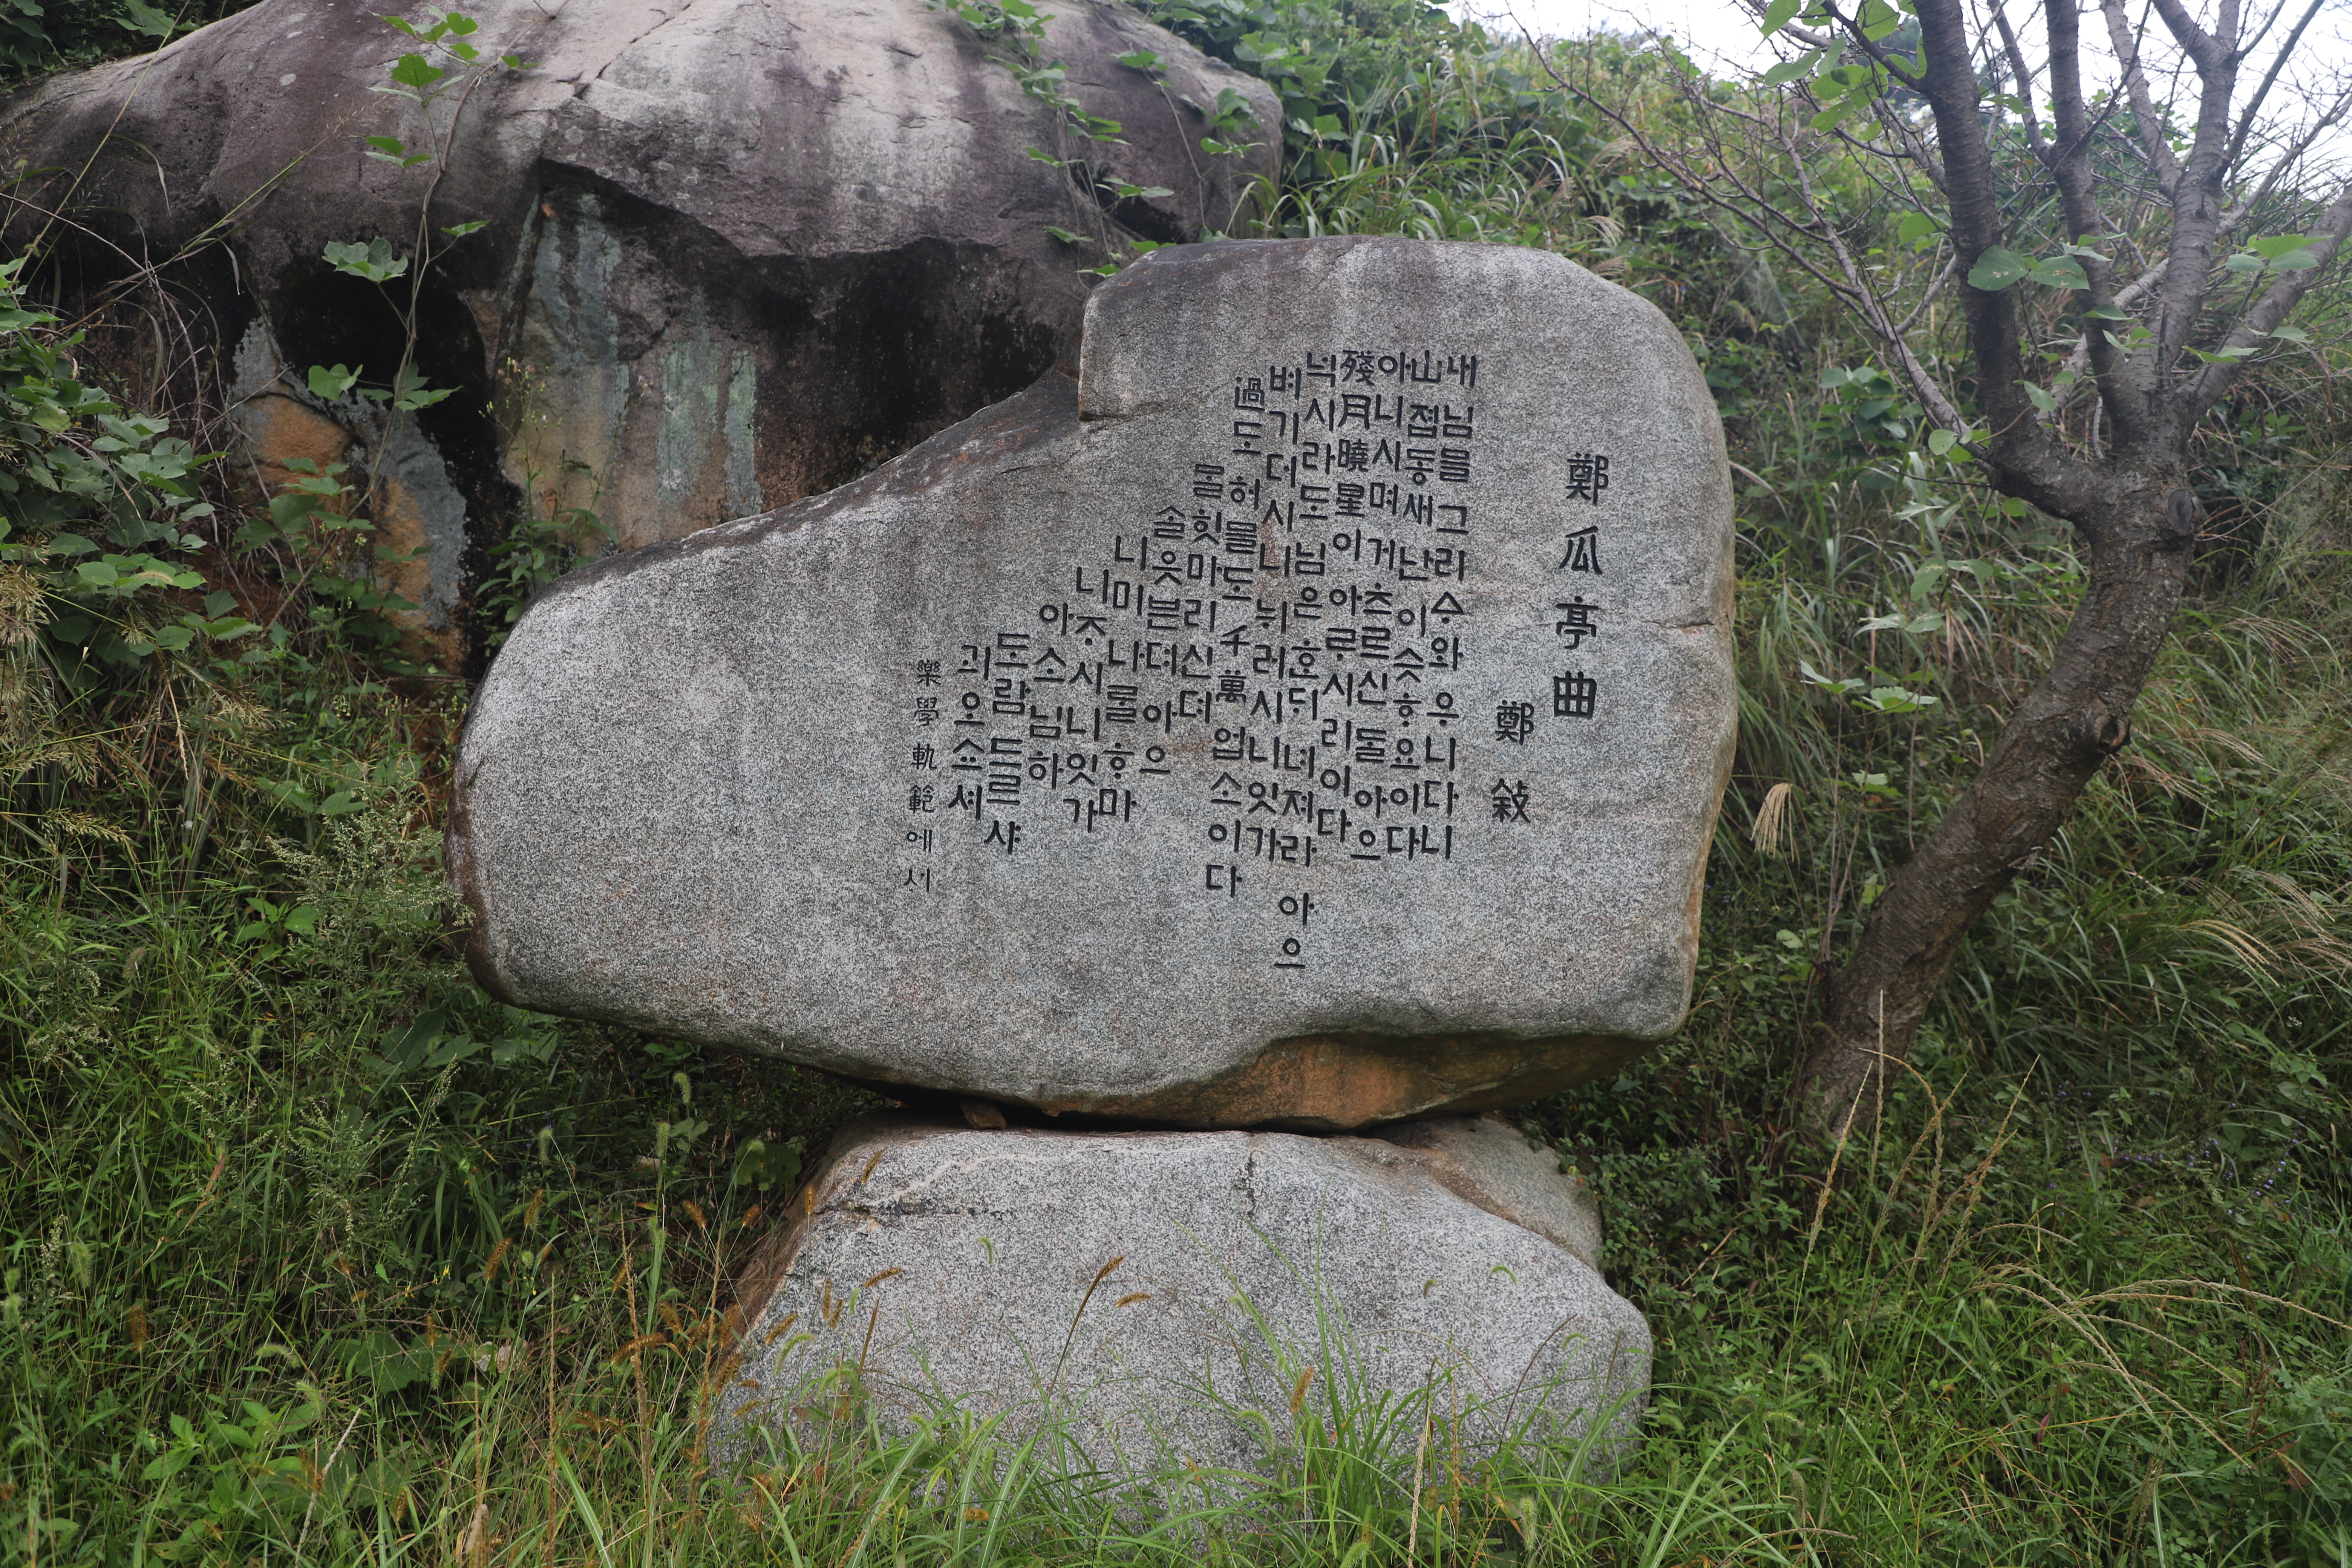 鄭瓜亭曲
鄭敍
내님믈그리ᅀᆞ와우니다니
山접동새난이슷ᄒᆞ요이다
아니시며거츠르신ᄃᆞᆯ아으
殘月曉星이아ᄅᆞ시리이다
넉시라도님은ᄒᆞᆫᄃᆡ녀져라 아으
벼기더시니뉘러시니잇가
過도 허믈도 千萬 업소이다
ᄆᆞᆯ힛마리신뎌
ᄉᆞᆯ읏븐뎌 아으
니미나ᄅᆞᆯᄒᆞ마
니ᄌᆞ시니잇가
아소 님하
도람 드르샤
괴오쇼셔
樂學軌範에서